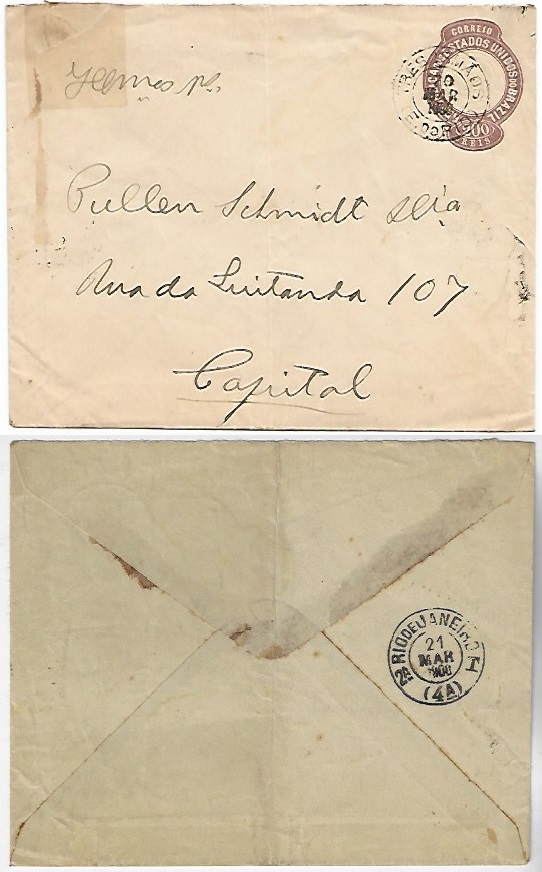 CORREIO
ESTADOS UNIDOS DO BRAZIL
REIS
MAR
Pullen Schmidt & Cia
Rua da Quitanda 107
Capital
2ª RIO DE JANEIRO T
21
MAR
1900
(4A)